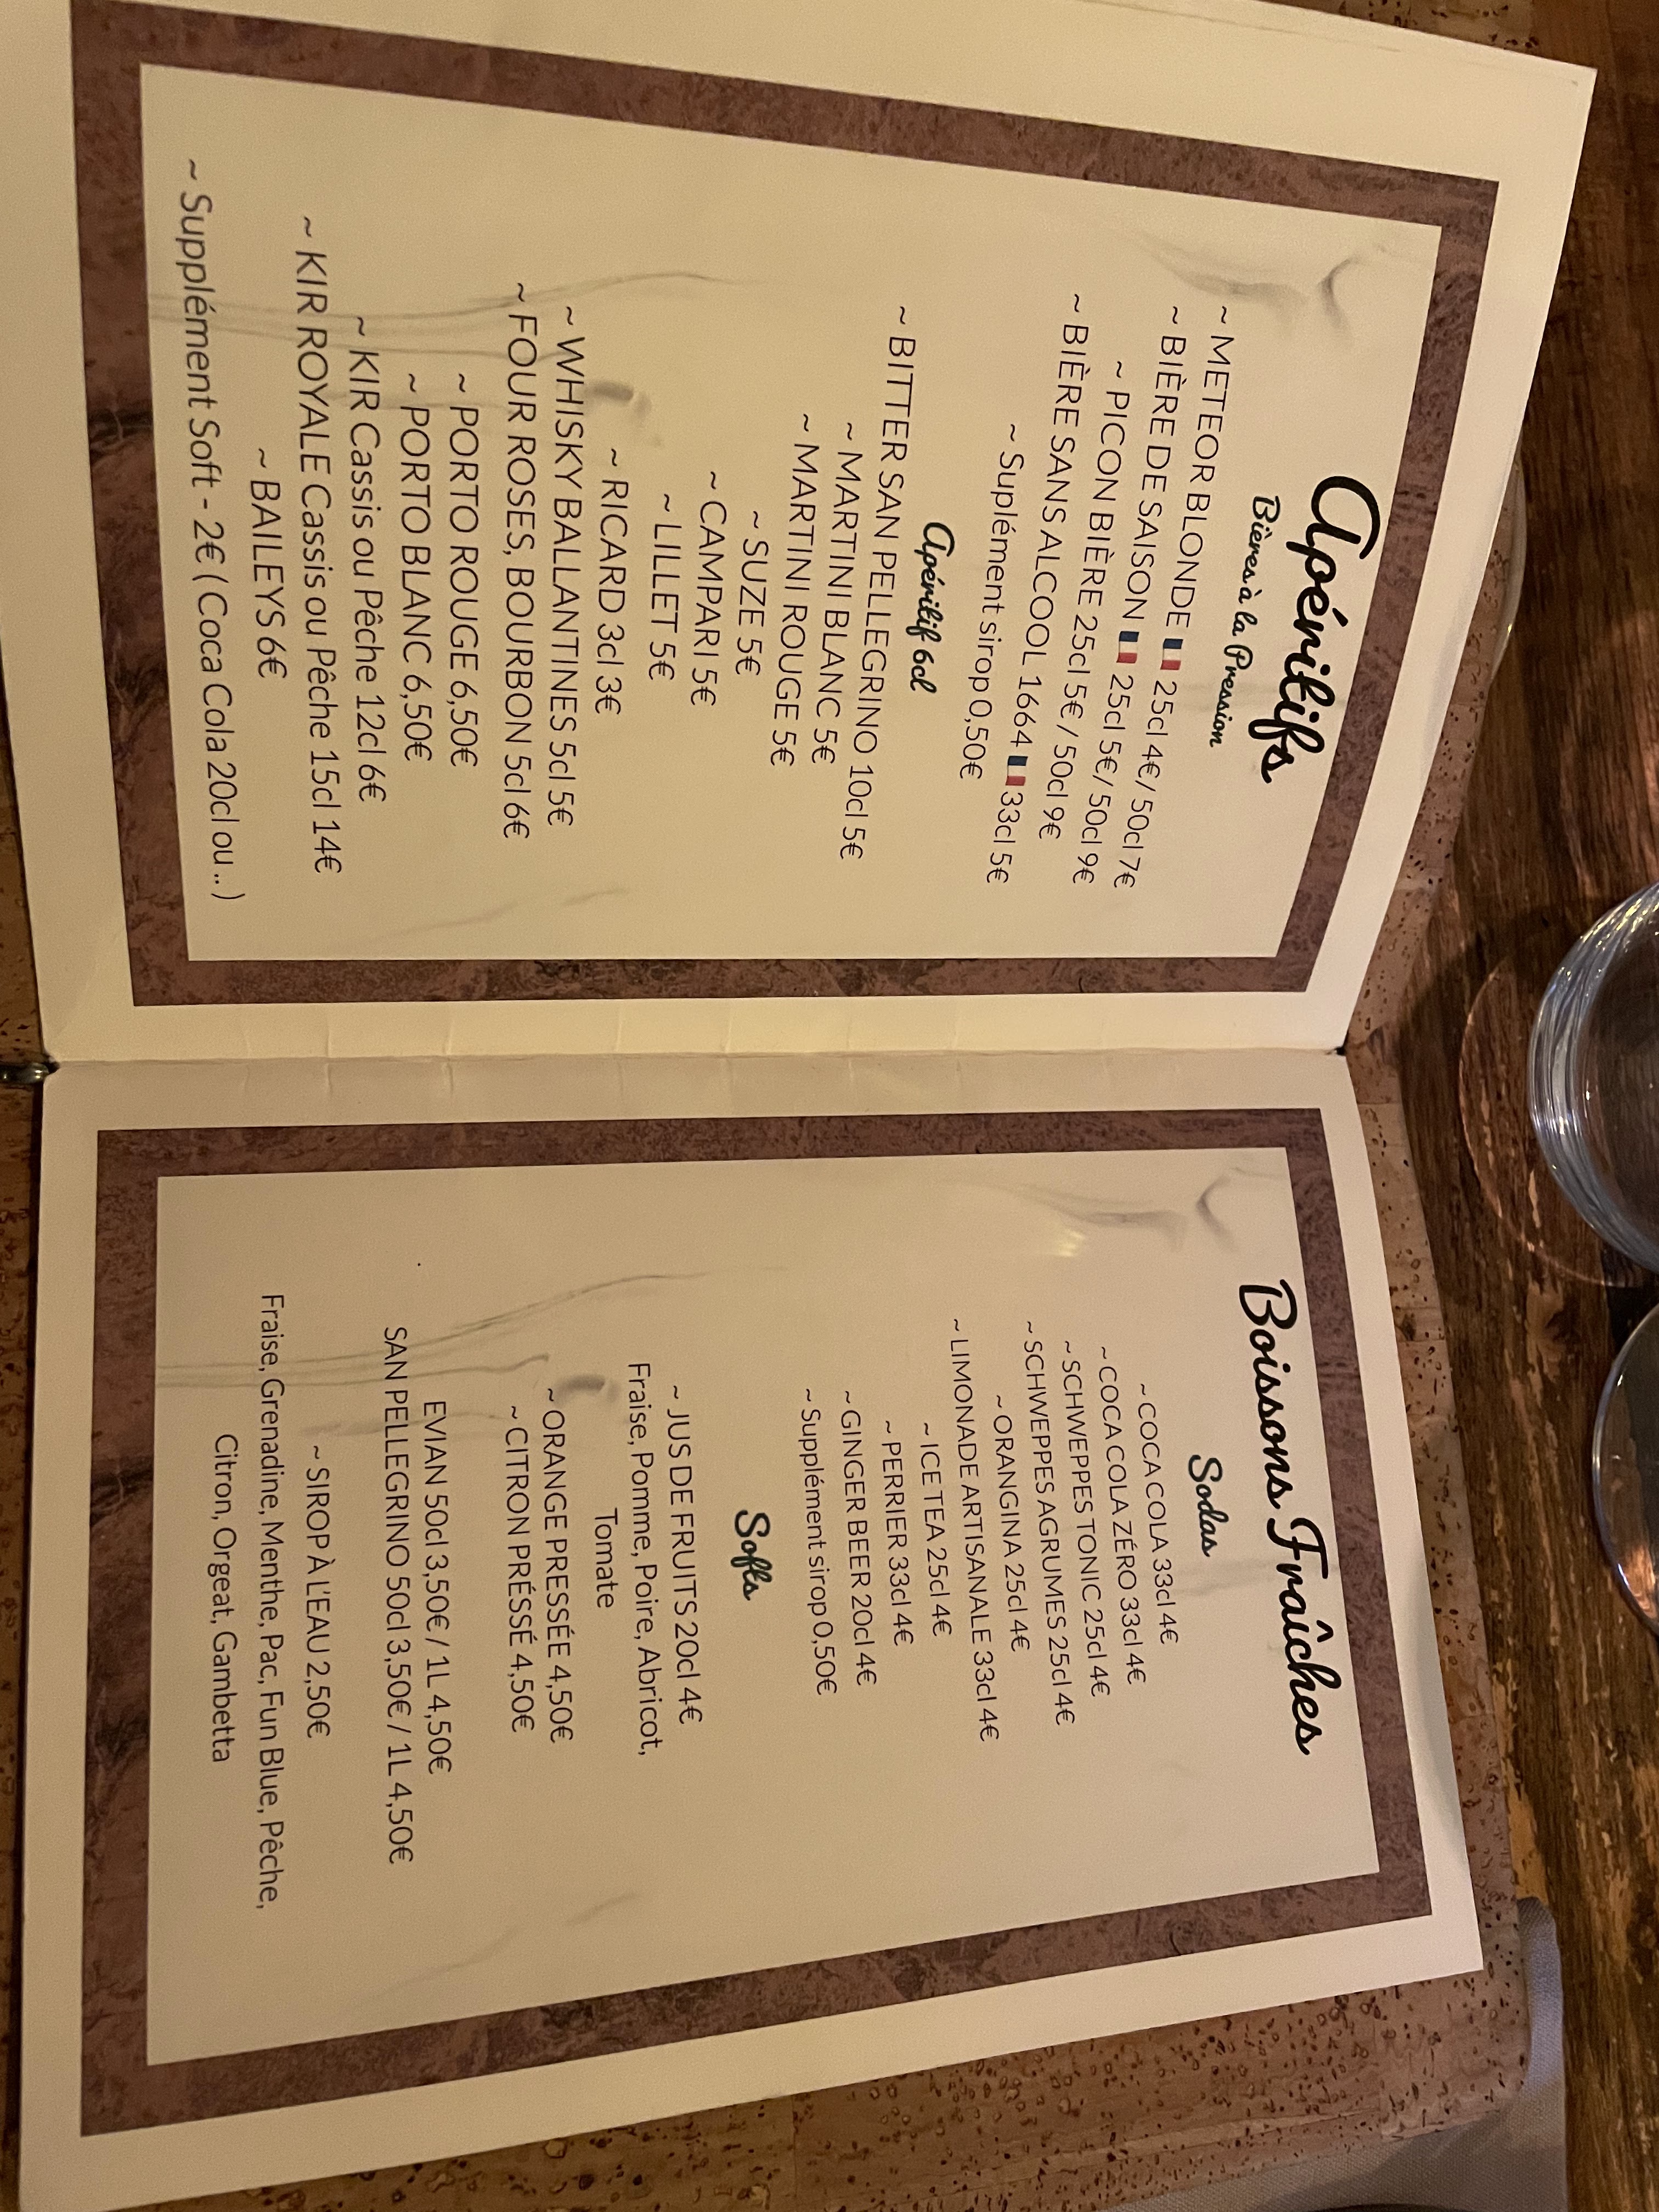 Apéritifs
Bières à la Pression
~ METEOR BLONDE 🇫🇷 25cl 4€ / 50cl 7€
~ BIÈRE DE SAISON 🇫🇷 25cl 5€/ 50cl 9€
~ PICON BIÈRE 25cl 5€ / 50cl 9€
~ BIÈRE SANS ALCOOL 1664 🇫🇷 33cl 5€
~ Suplément sirop 0,50€
Apéritif 6cl
~ BITTER SAN PELLEGRINO 10cl 5€
~ MARTINI BLANC 5€
~ MARTINI ROUGE 5€
~ SUZE 5€
~ CAMPARI 5€
~ LILLET 5€
~ RICARD 3cl 3€
~ WHISKY BALLANTINES 5cl 5€
~ FOUR ROSES, BOURBON 5cl 6€
~ PORTO ROUGE 6,50€
~ PORTO BLANC 6,50€
~ KIR Cassis ou Pêche 12cl 6€
~ KIR ROYALE Cassis ou Pêche 15cl 14€
~ BAILEYS 6€
~ Supplément Soft - 2€ ( Coca Cola 20cl ou .. )
Boissons Fraîches
Sodas
~ COCA COLA 33cl 4€
~ COCA COLA ZÉRO 33cl 4€
~ SCHWEPPES TONIC 25cl 4€
~ SCHWEPPES AGRUMES 25cl 4€
~ ORANGINA 25cl 4€
~ LIMONADE ARTISANALE 33cl 4€
~ ICE TEA 25cl 4€
~ PERRIER 33cl 4€
~ GINGER BEER 20cl 4€
~ Supplément sirop 0,50€
Softs
~ JUS DE FRUITS 20cl 4€
Fraise, Pomme, Poire, Abricot,
Tomate
~ ORANGE PRESSÉE 4,50€
~ CITRON PRÉSSÉ 4,50€
EVIAN 50cl 3,50€ / 1L 4,50€
SAN PELLEGRINO 50cl 3,50€ / 1L 4,50€
~ SIROP À L'EAU 2,50€
Fraise, Grenadine, Menthe, Pac, Fun Blue, Pêche,
Citron, Orgeat, Gambetta